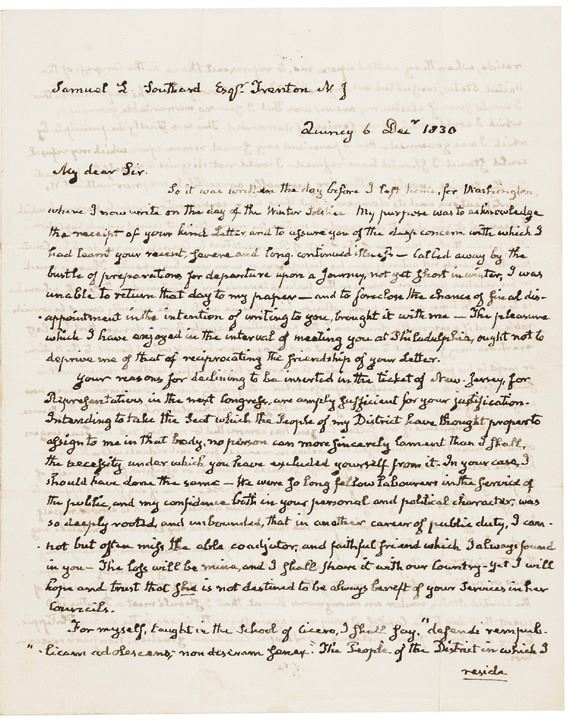 Samuel L. Southard Esqr. Trenton N. J
Quincy 6 Decr 1830
My dear Sir.
So it was written the day before I left home, for Washington,
where I now write on the day of the Winter Solstice. My purpose was to acknowledge
the receipt of your kind Letter, and to assure you of the deep concern with which I
had learnt your recent, severe and long continued illness — Called away by the
bustle of preparations for departure upon a Journey, not yet short in winter, I was
unable to return that day to my paper — and to foreclose the chance of final dis-
-appointment in the intention of writing to you, brought it with me — The pleasure
which I have enjoyed in the interval of meeting you at Philadelphia, ought not to
deprive me of that of reciprocating the friendship of your Letter.
Your reasons for declining to be inserted in the ticket of New Jersey, for
Representatives in the next Congress, are amply sufficient for your justification.
Intending to take the Seat which the People of my District have thought proper to
assign to me in that body, no person can more sincerely lament than I shall,
the necessity under which you have excluded yourself from it. In your case, I
should have done the same — We were so long fellow labourers in the service of
the public, and my confidence both in your personal and political character, was
so deeply rooted, and unbounded, that in another career of public duty, I can-
-not but often miss the able coadjutor, and faithful friend which I always found
in you — The loss will be mine, and I shall share it with our Country — yet I will
hope and trust that she is not destined to be always bereft of your Services in her
Councils.
For myself, taught in the School of Cicero, I shall say, "defendi rempub-
"-licam adolescens; non deseram senex." The People of the District in which I
reside